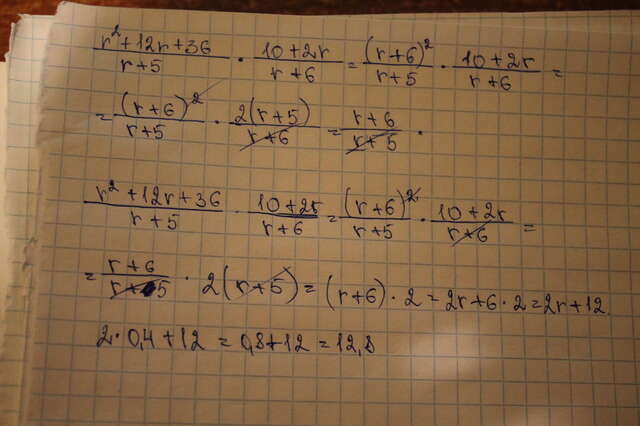 (r²+12r+36)/(r+5) · (10+2r)/(r+6) = (r+6)²/(r+5) · (10+2r)/(r+6) =
= (r+6)²/(r+5) · 2(r+5)/(r+6) = (r+6)/(r+5) ·
(r²+12r+36)/(r+5) · (10+2r)/(r+6) = (r+6)²/(r+5) · (10+2r)/(r+6) =
= (r+6)/(r+5) · 2(r+5) = (r+6) · 2 = 2r+6·2 = 2r+12
2·0,4+12 = 0,8+12 = 12,8